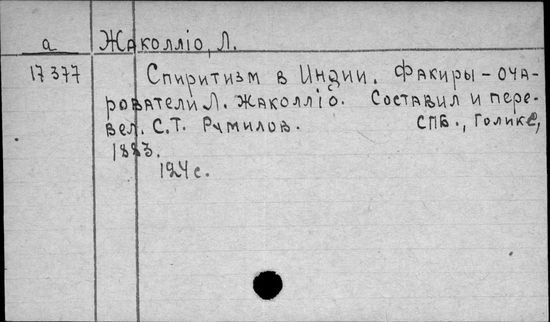 а Жаколліо, Л.
17377 Спиритизм в Индии. Факиры-оча-
рователи Л. Жаколліо. Составил и пере-
вел. С.Т. Румилов. СПБ., Голике,
1883.
124 с.